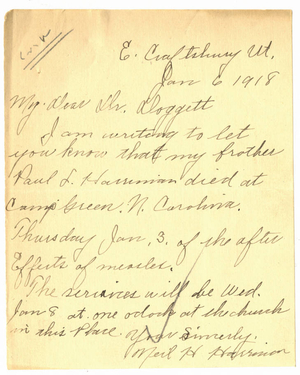 E. Craftsbury Vt.
Jan 6 1918
My Dear Dr. Doggett
I am writing to let
you know that my brother
Paul L. Harriman died at
Camp Green. N. Carolina.
Thursday Jan. 3. of the after
Effects of measles.
The services will be Wed.
Jan 8 at one oclock at the church
in this Place.
Your Sincerely.
Neil H Harriman